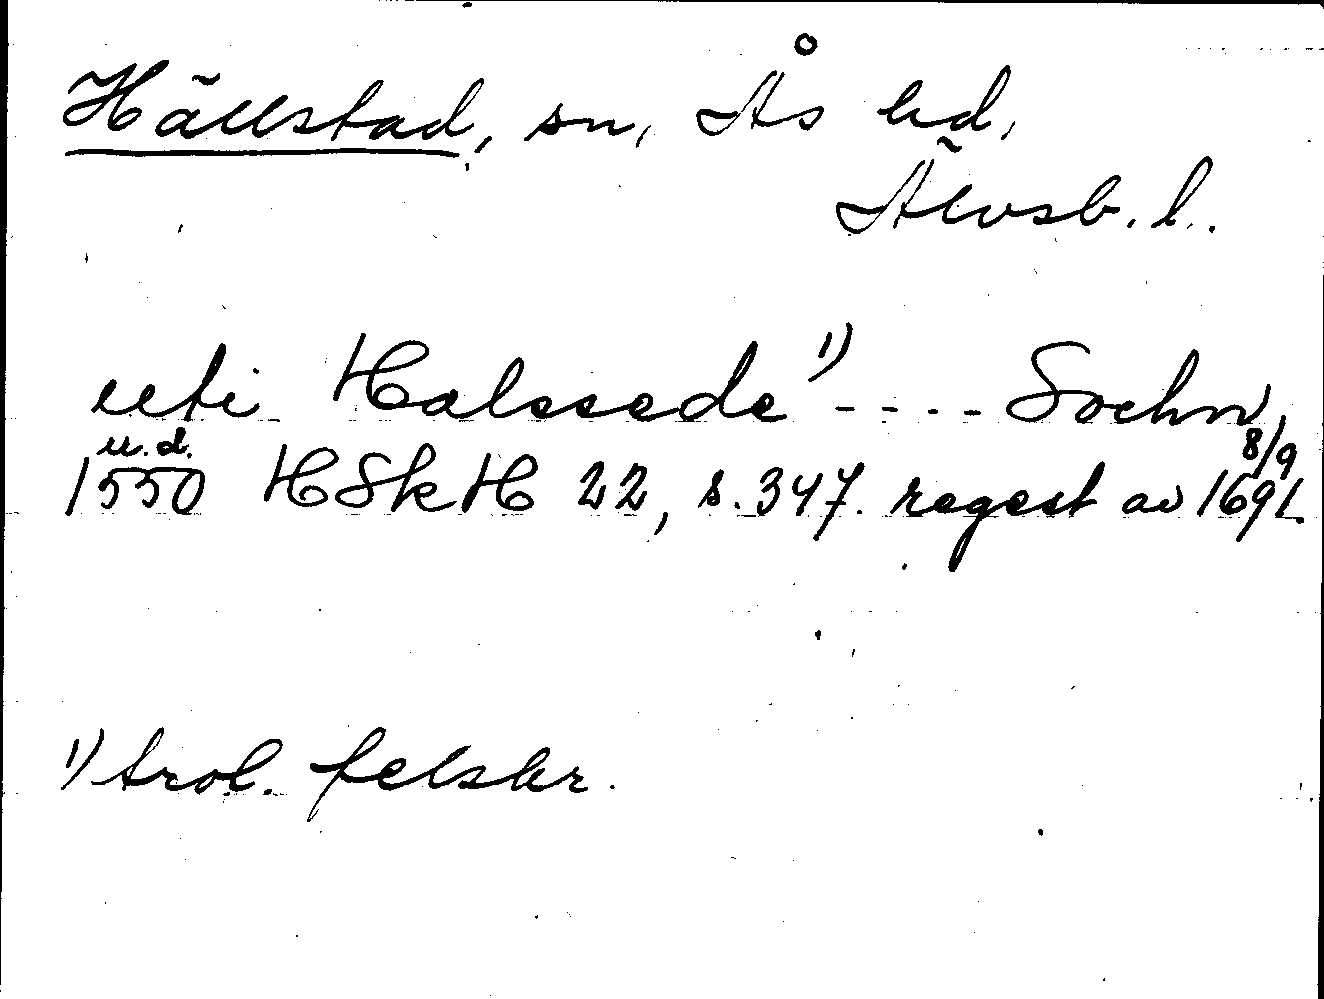 Hällstad, sn, Ås hd,
Älvsb. l.
uti Halssede 1) - - - - Sochn,
1550 u.d. HSkH 22, s. 347. regest av 8/9 1691.
1) trol. felskr.